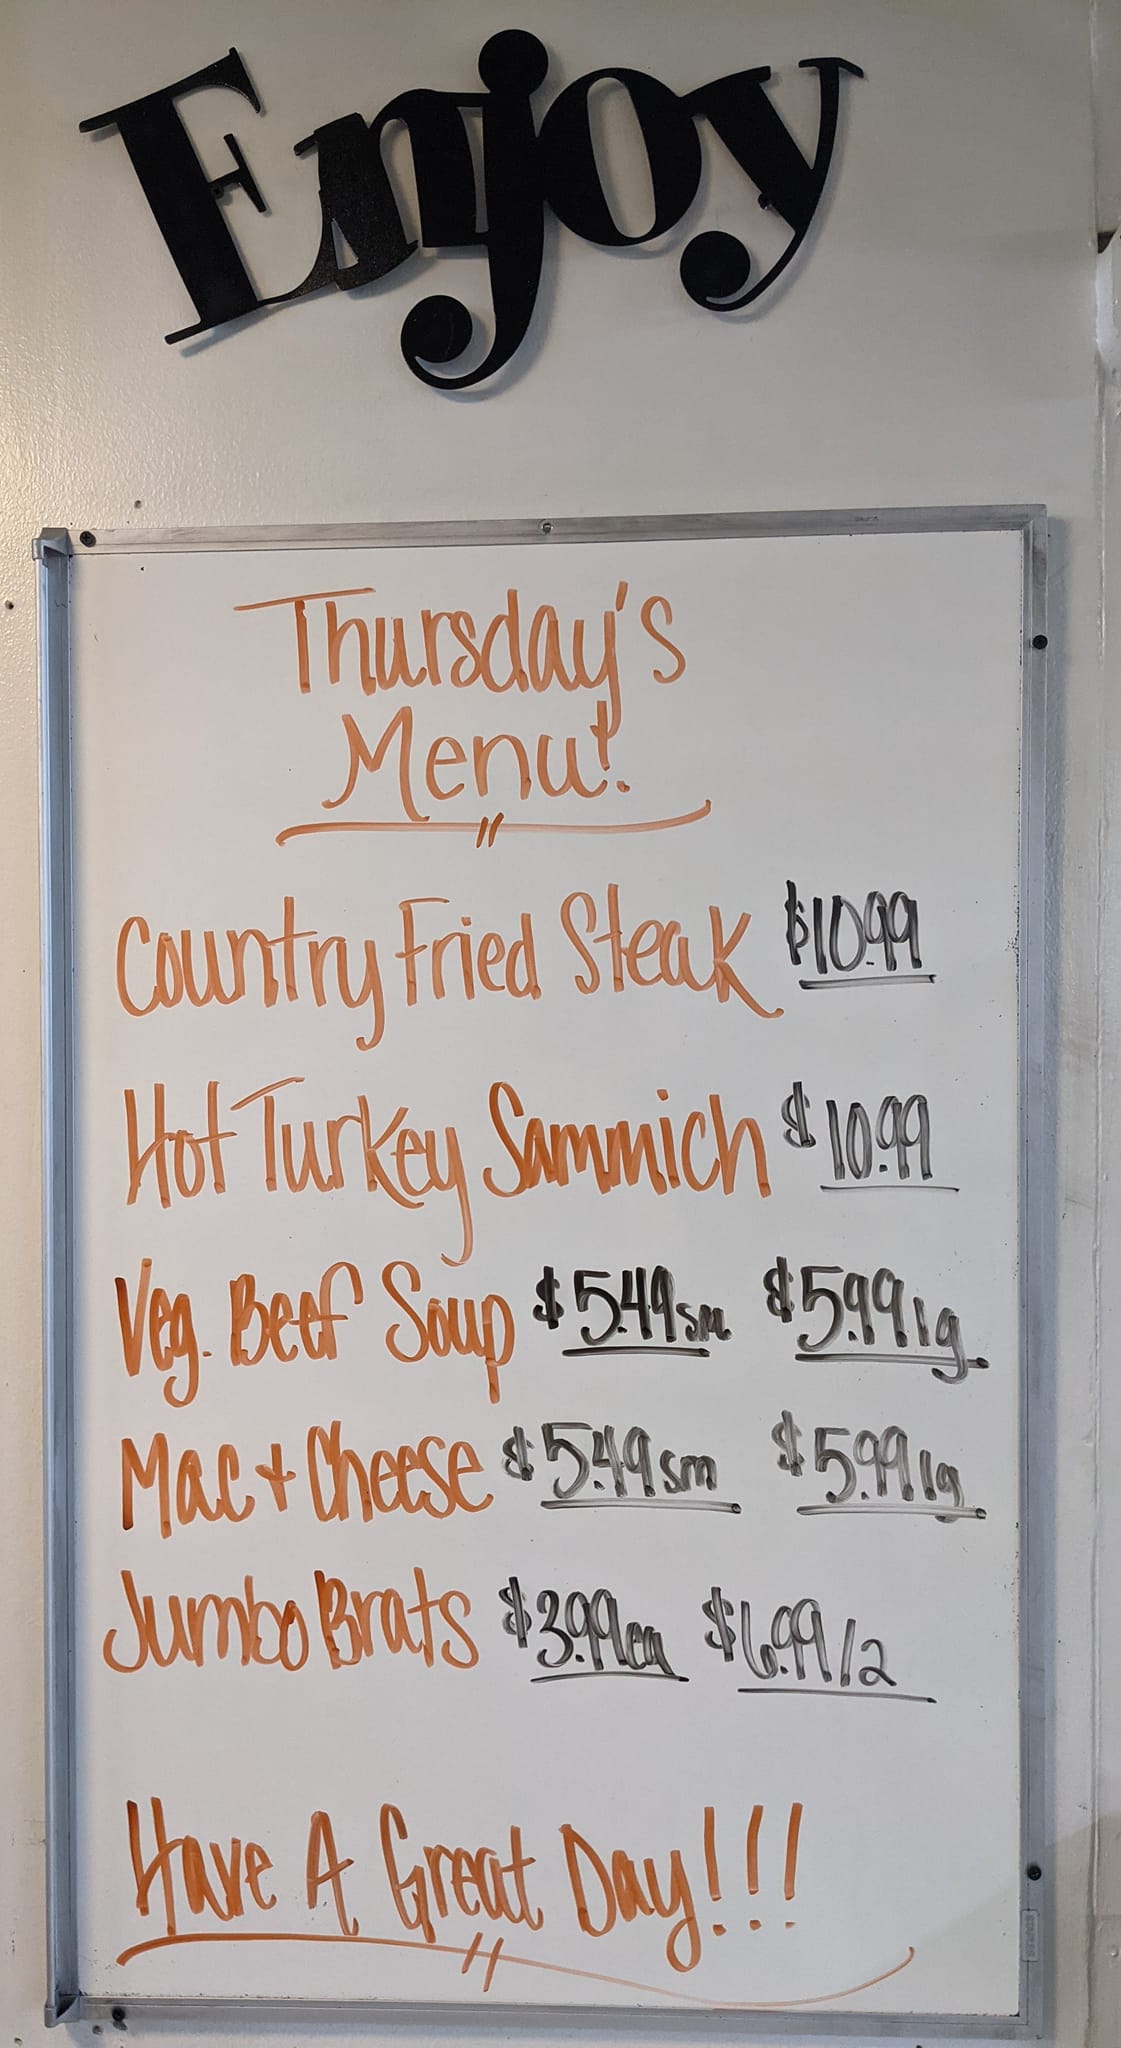 Enjoy
Thursday's
Menu!
Country Fried Steak $10.99
Hot Turkey Sammich $10.99
Veg. Beef Soup $5.49 sm $5.99 lg
Mac + Cheese $5.49 sm $5.99 lg
Jumbo Brats $3.99 ea $6.99/2
Have A Great Day!!!